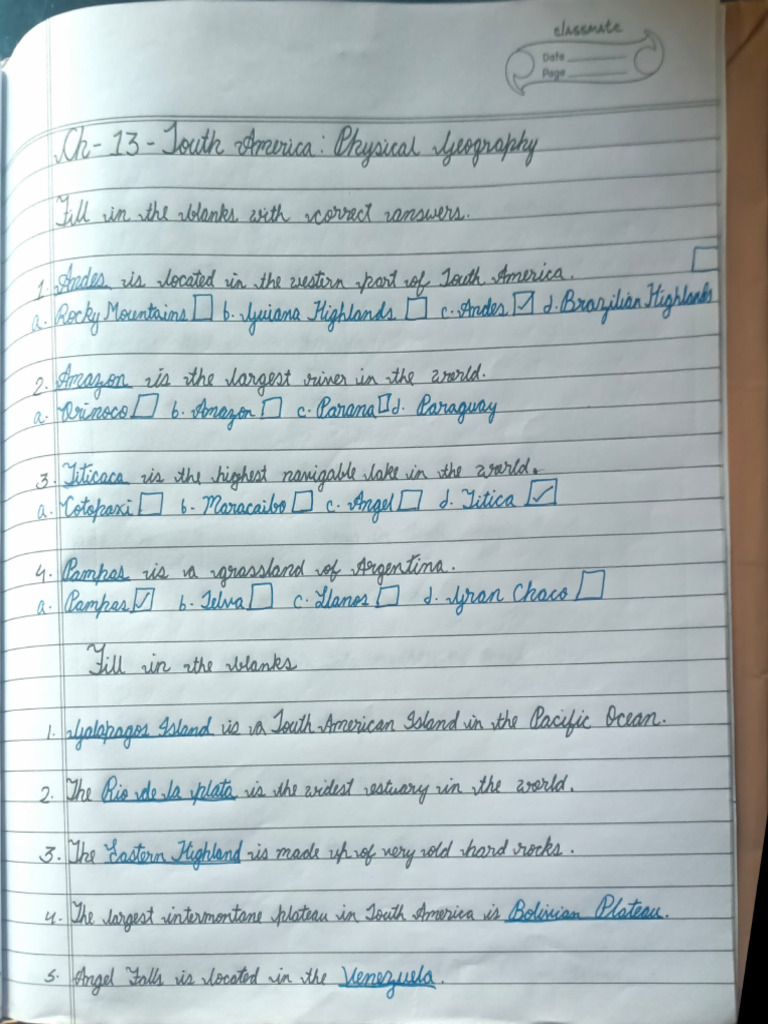 classmate
Date
Page
Ch-13-South America: Physical Geography
Fill in the blanks with correct answers.
1. Andes is located in the western part of South America.
a. Rocky Mountains b. Guiana Highlands c. Andes ✓ d. Brazilian Highlands
2. Amazon is the largest river in the world.
a. Orinoco b. Amazon c. Parana d. Paraguay
3. Titicaca is the highest navigable lake in the world.
a. Cotopaxi b. Maracaibo c. Angel d. Titica ✓
4. Pampas is a grassland of Argentina.
a. Pampas ✓ b. Selva c. Llanos d. Gran Chaco
Fill in the blanks
1. Galapagos Island is a South American Island in the Pacific Ocean.
2. The Rio de la plata is the widest estuary in the world.
3. The Eastern Highland is made up of very old hard rocks.
4. The largest intermontane plateau in South America is Bolivian Plateau.
5. Angel Falls is located in the Venezuela.